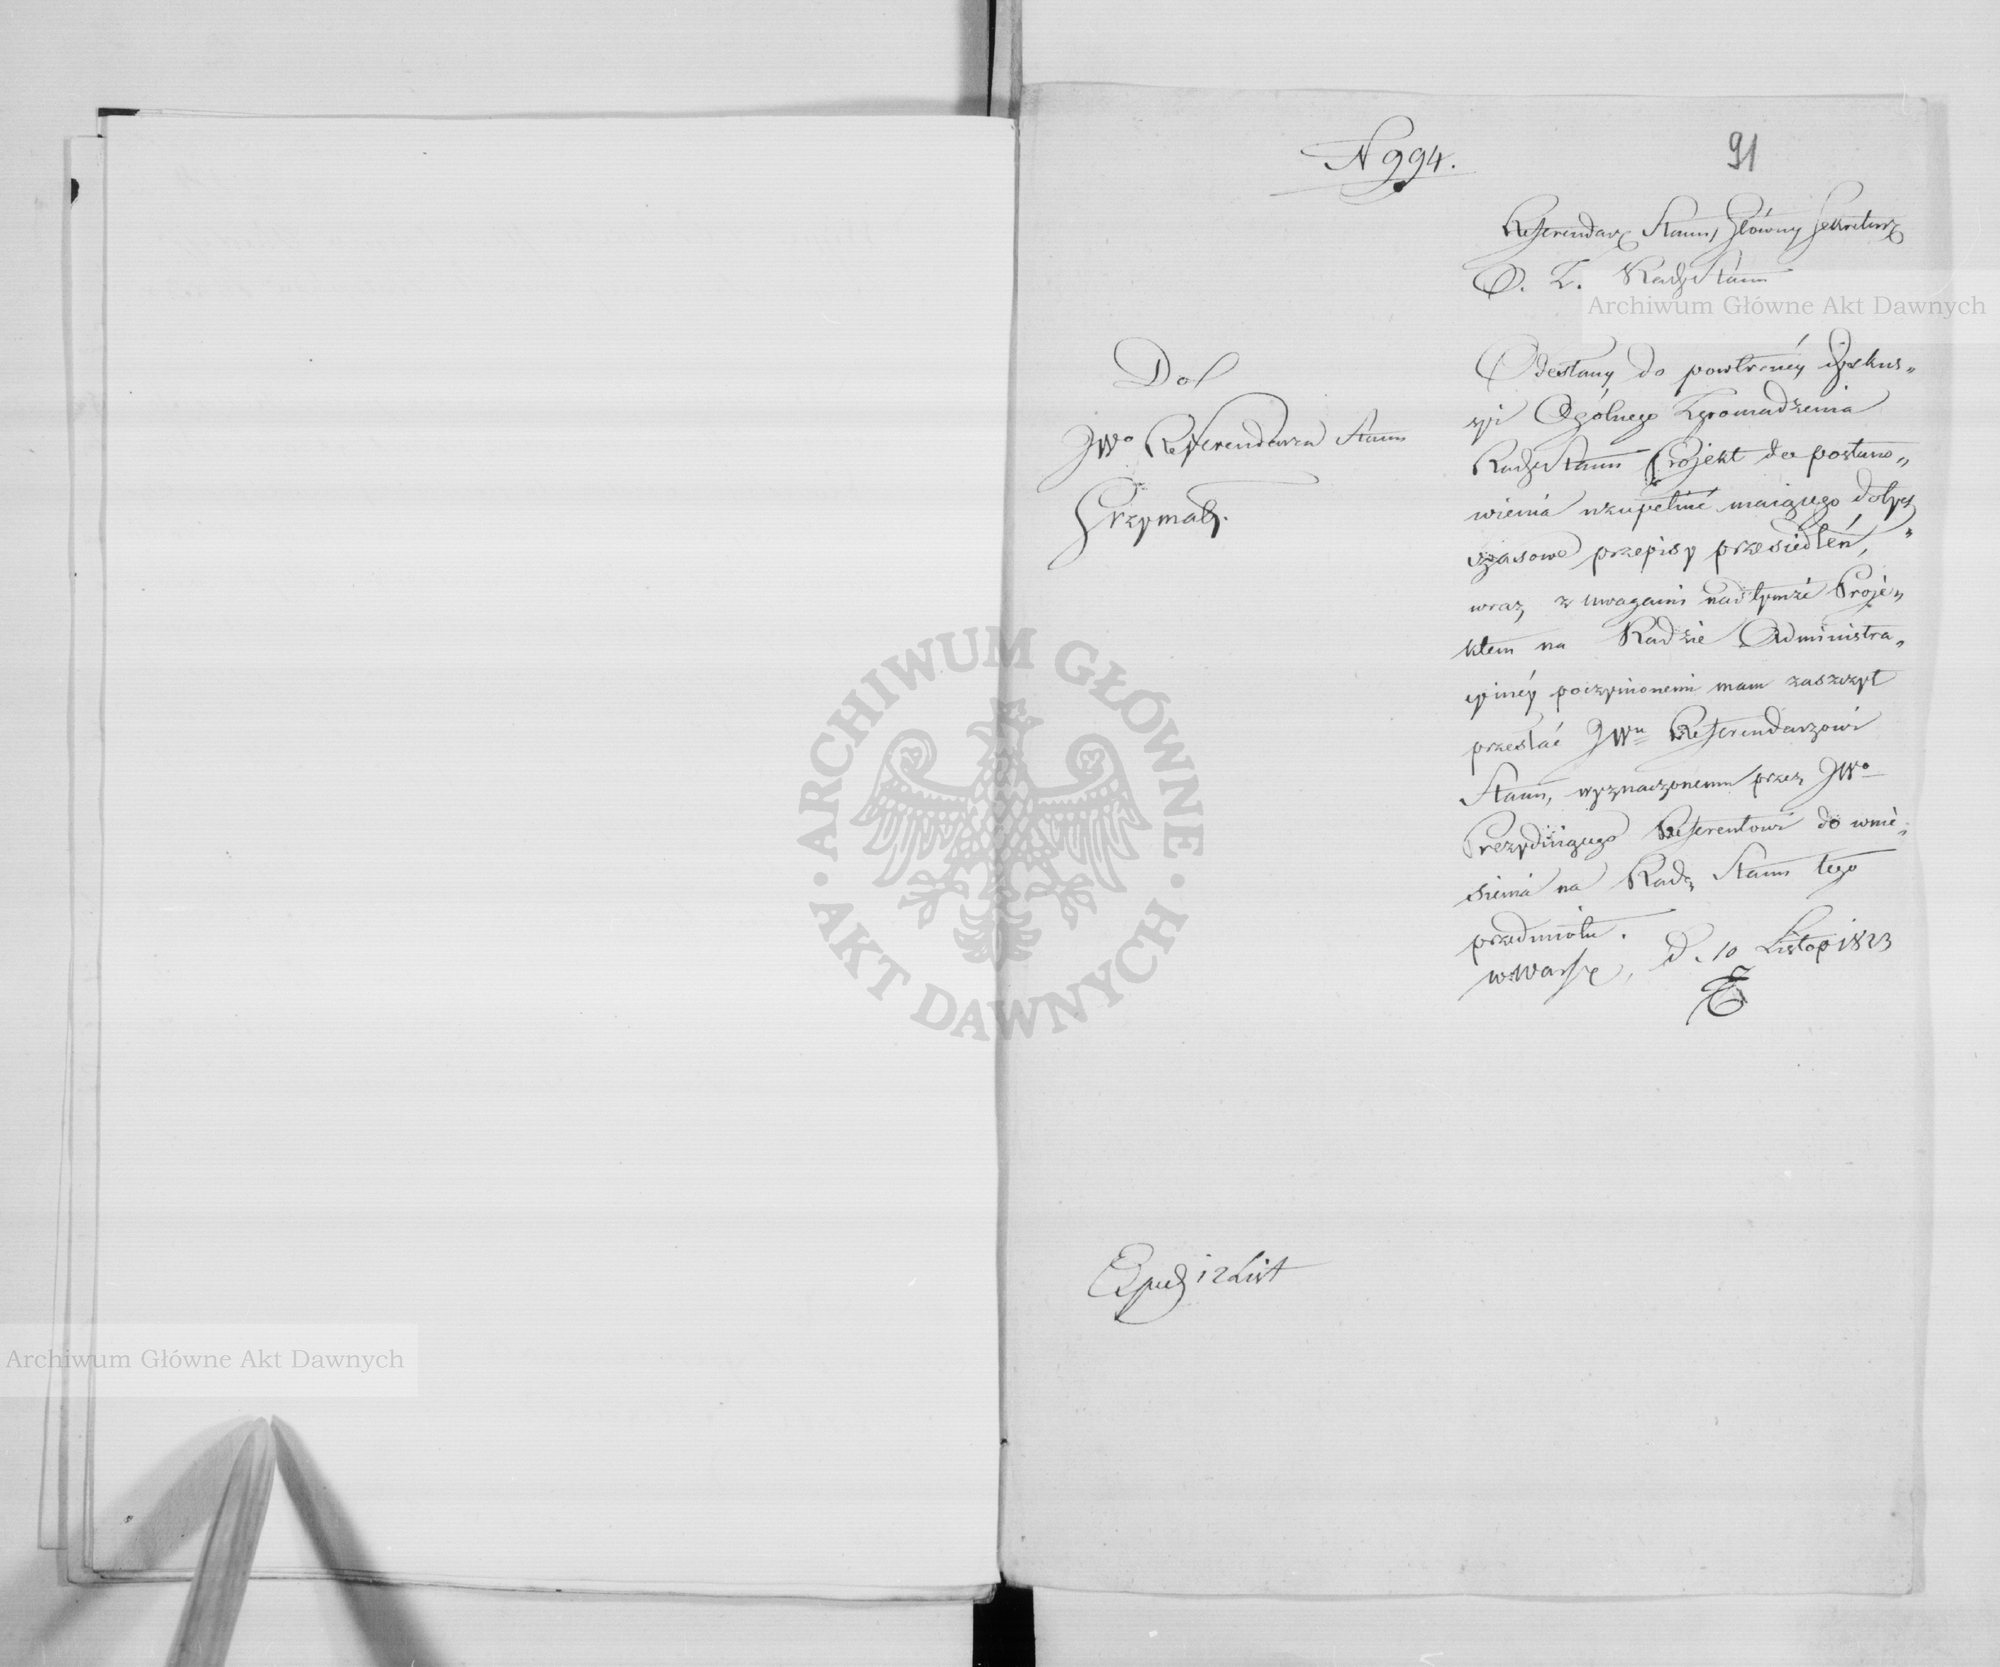 N 994.
91
Referendarz Stanu, Główny Sekretarz
O. Z. Rady Stanu
Archiwum Główne Akt Dawnych
Do
JWo Referendarza Stanu
Grzymały.
Odesłany do powtórnéy dyskus„
syi Ogólnego Zgromadzenia
Rady Stanu Projekt do postano„
wienia uzupełnić maiącego dotych„
czasowe przepisy przesiedleń,
wraz z uwagami nad tymże Proje„
ktem na Radzie Administra„
cyinéy poczynionemi mam zaszczyt
przesłać JWu Referendarzowi
Stanu, wyznaczonemu przez JWo
Prezyduiącego Referentowi do wnie„
sienia na Radę Stanu tego
przedmiotu.
w Warsz, d. 10 Listop 1823
ARCHIWUM GŁÓWNE
AKT DAWNYCH
Exped 12 List
Archiwum Główne Akt Dawnych